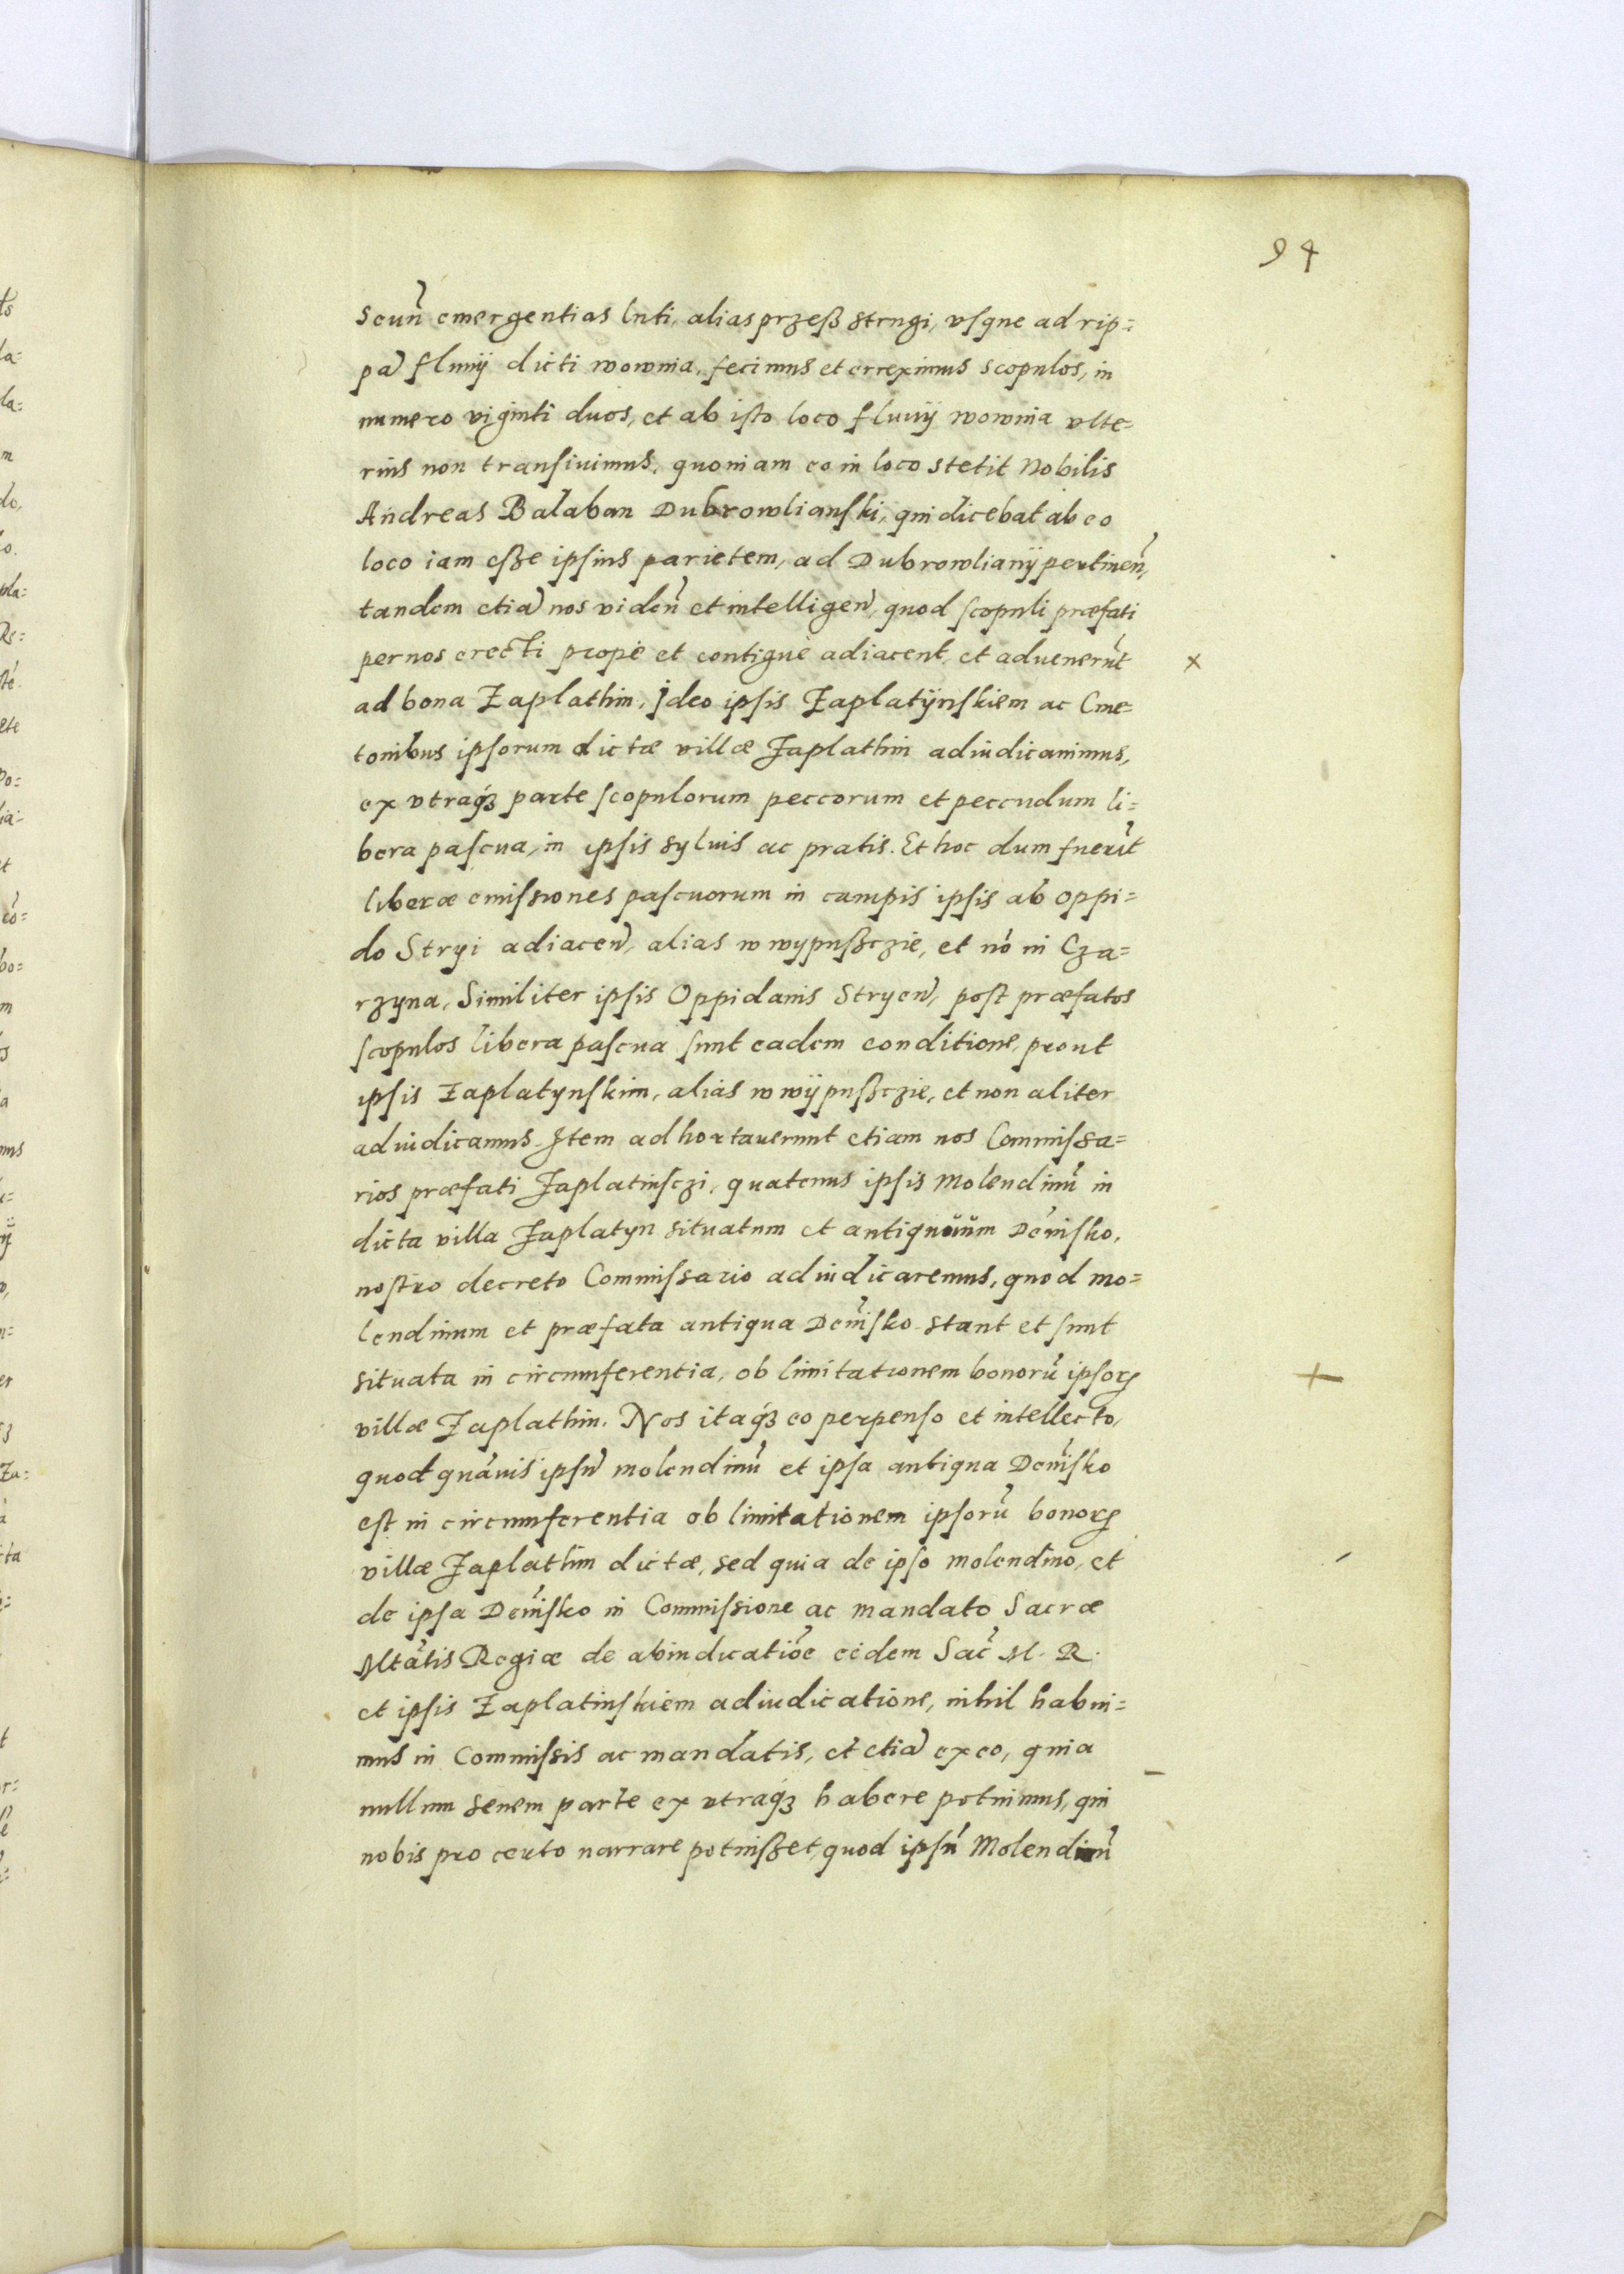 94
secun̄ emergentias luti, alias przeß strugi, vsque ad rip=
pā fluuij dicti wownia, fecimus et erreximus scopulos, in
numero viginti duos, et ab isto loco fluuij wownia vlte=
rius non transiuimus, quoniam eo in loco stetit Nobilis
Andreas Balaban Dubrowlianski, qui dicebat ab eo
loco iam eſze ipsius parietem, ad Dubrowlianij pertinen̄,
tandem etiā nos viden̄ et intelligen̄, quod scopuli præfati
per nos erecti prope et contigue adiacent, et aduenerūt
ad bona Zaplathin, Ideo ipsis Zaplatÿnskiem ac Cme=
tonibus ipsorum dictæ villæ Zaplathin adiudicauimus,
ex vtraqȝ parte scopulorum peccorum et peccudum li=
bera pascua, in ipsis syluis ac pratis. Et hoc dum fuerīt
liberæ emissiones pascuorum in campis ipsis ab oppi=
do Stryi adiacen̄, alias w wypußczie, et nō in Cza=
rzyna, Similiter ipsis Oppidanis Stryen̄, post præfatos
scopulos libera pascua sunt eadem conditione, prout
ipsis Zaplatynskim, alias w wÿpußczie, et non aliter
adiudicamus. Item adhortauerunt etiam nos Commissa=
rios præfati Zaplatinsczi, quatenus ipsis Molendinū in
dicta villa Zaplatyn situatum et antiquum Dēnisko,
nostro decreto Commissario adiudicaremus, quod mo=
lendinum et præfata antiqua Dēnisko stant et sunt
situata in circumferentia, ob limitationem bonorū ipsorꝝ
villæ Zaplathin. Nos itaqȝ eo perpenso et intellecto,
quod quāuis ipsū molendinū et ipsa antiqua Dēnisko
est in circumferentia ob limitationem ipsorū bonorꝝ
villæ Zaplathin dictæ, sed quia de ipso molendino, et
de ipsa Dēnisko in Commissione ac mandato Sacræ
Mtātis Regiæ de abiudicatiōe eidem Sac̄ M. R.
et ipsis Zaplatinskiem adiudicatione, nihil habui=
mus in Commissis ac mandatis, et etiā ex eo, quia
nullum senem parte ex vtraqȝ habere potuimus, qui
nobis pro certo narrare potuißet, quod ipsū Molendinū